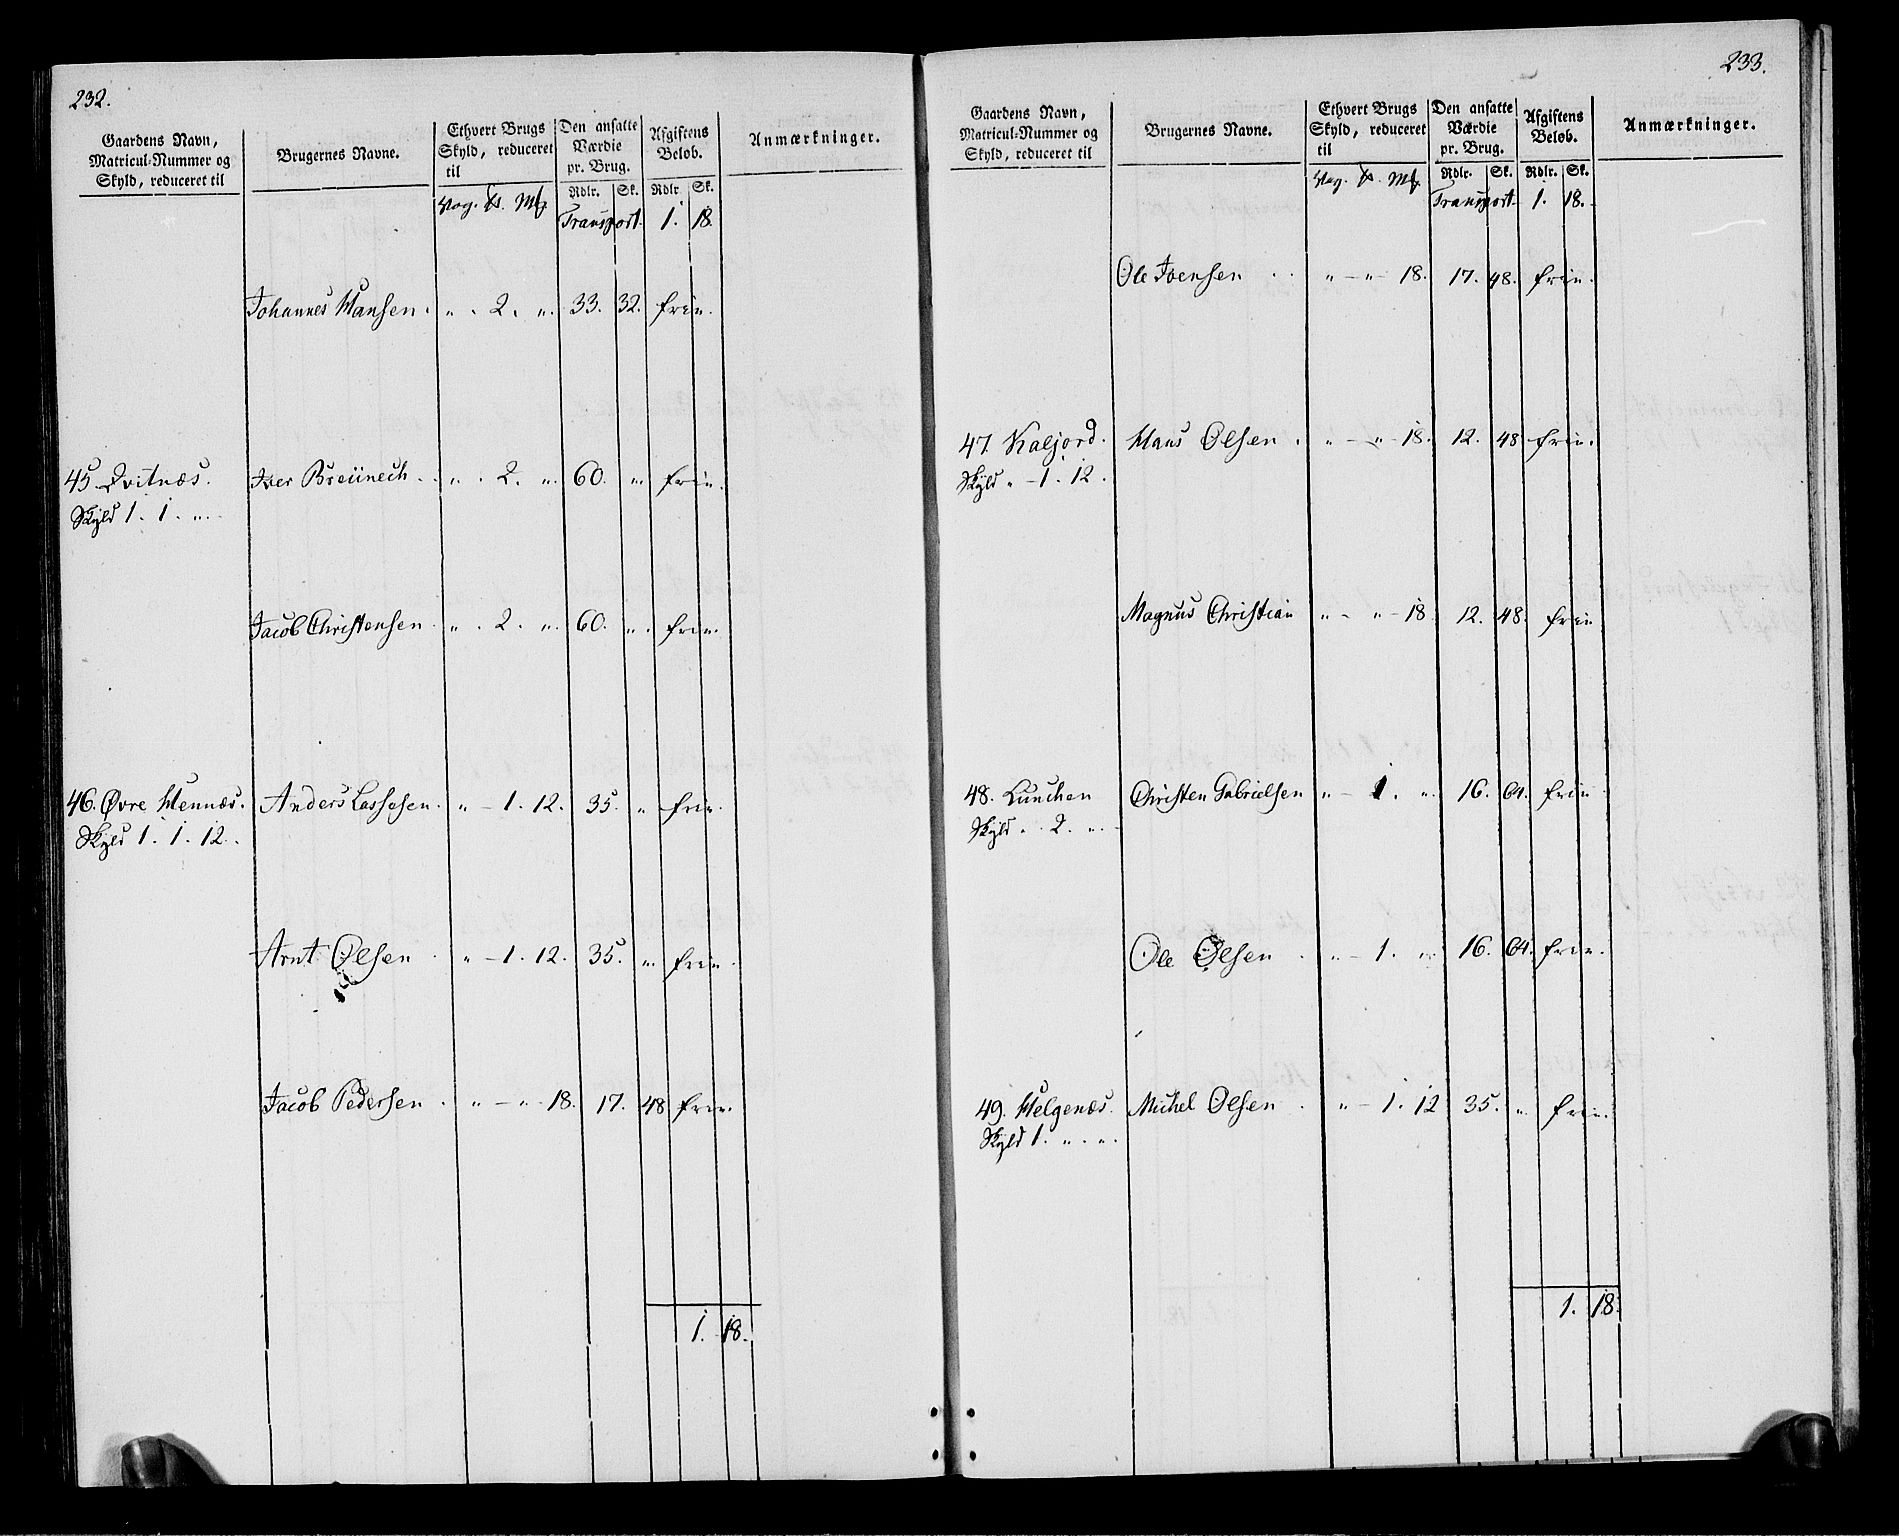 232.
Gaardens Navn, Matricul-Nummer og Skyld, reduceret til | Brugernes Navne. | Ethvert Brugs Skyld, reduceret til | Den ansatte Værdie pr. Brug. | Afgiftens Belob. | Anmærkninger.
Vog. Pd. Mk | Rdlr. Sk. | Rdlr. Sk.
Transport. 1. 18.
Johannes Hansen . " . 2 . " . 33. 32. frie.
45. Qvitnæs. Iver Breünech . " . 2. " . 60. " frie.
Skyld 1. 1. "
Jacob Christensen . " . 2. " . 60. " . frie.
46. Øvre Hennæs. Anders Lassesen . " - 1. 12. 35. " frie.
Skyld 1. 1. 12.
Arnt Olsen . " - 1. 12. 35. " frie.
Jacob Pedersen . " - " - 18. 17. 48 frie.
1. 18.
233.
Gaardens Navn, Matricul-Nummer og Skyld, reduceret til | Brugernes Navne. | Ethvert Brugs Skyld, reduceret til | Den ansatte Værdie pr. Brug. | Afgiftens Belob. | Anmærkninger.
Vog. Pd. Mk | Rdlr. Sk. | Rdlr. Sk.
Transport. 1. 18.
Ole Iversen . . " - " - 18. 17. 48. frie.
47. Kaljord. Hans Olsen . " - " - 18. 12. 48 frie.
Skyld " - 1. 12.
Magnus Christian " - " - 18 12. 48. frie
48. Lünchen Christen Gabrielsen " - 1. " . 16. 64. frie
Skyld " . 2. " .
Ole Olsen . " - 1. " 16. 64. frie.
49. Helgenæs. Michel Olsen . " - 1. 12 35. " frie.
Skyld 1. " . " .
1. 18